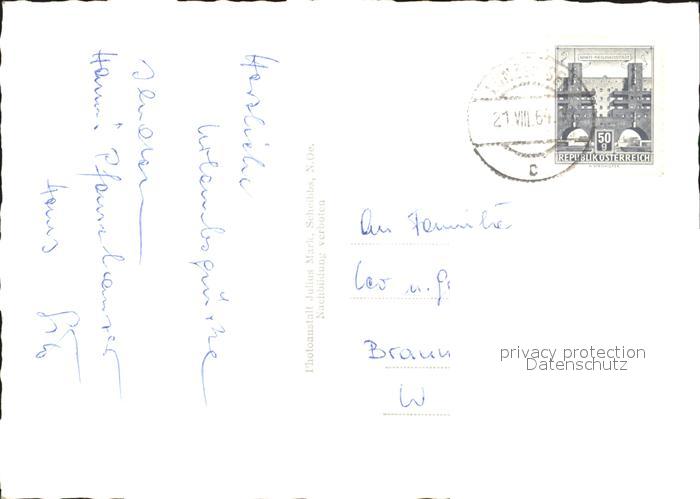 Herzliche
Urlaubsgrüße
senden
Hans
Photoanstalt Julius Mark, Scheibbs, N.Oe.
Nachbildung verboten
21 VIII.64
c
50
g
REPUBLIK ÖSTERREICH
An Familie
Leo u. Gr
Braun
W
privacy protection
Datenschutz